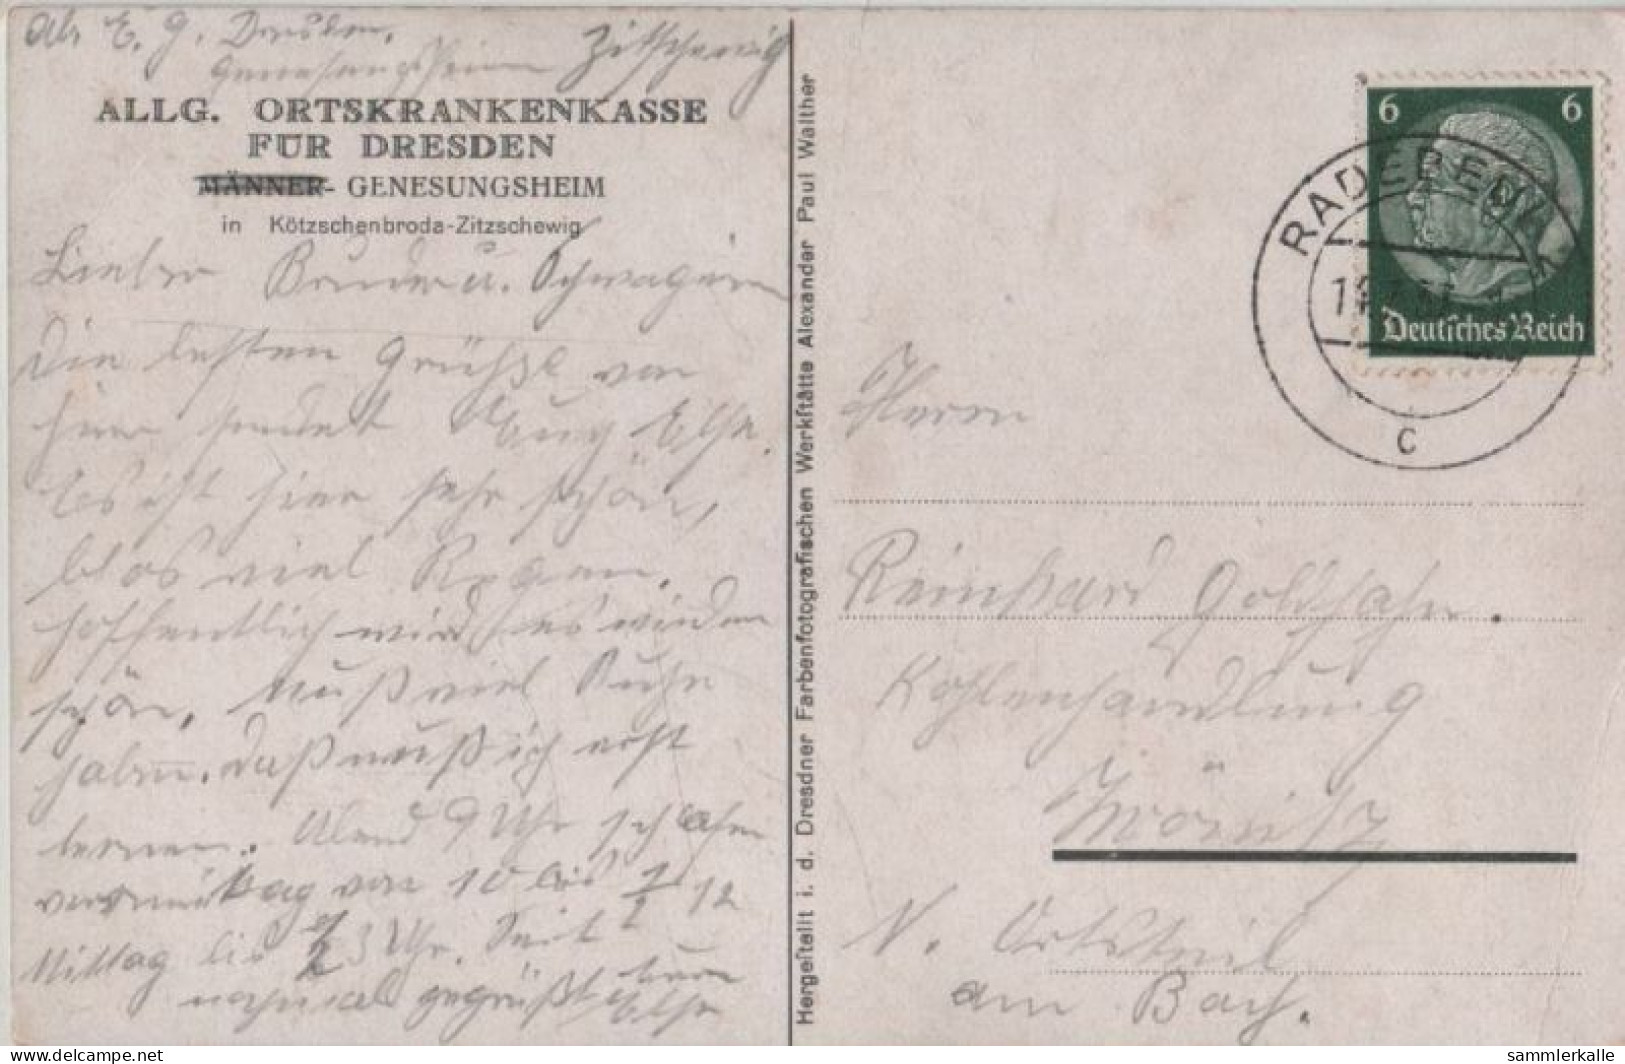 Abs. E. G. Dresden.
Genesungsheim Zitschewig
ALLG. ORTSKRANKENKASSE
FÜR DRESDEN
MÄNNER- GENESUNGSHEIM
in Kötzschenbroda-Zitzschewig
Lieber Bruder u. Schwägerin
Die besten Grüße von
hier sendet Euch Else.
Es ist hier sehr schön,
blos viel Regen.
hoffentlich wird es wieder
schön. muß viel Ruhe
haben. daß muß ich erst
lernen. Abend 9 Uhr schlafen
vormittag von 10 bis 1/2 12
Mittag bis 1/2 3 Uhr. Seid
nochmal gegrüßt Else
Hergestellt i. d. Dresdner Farbenfotografischen Werkstätte Alexander Paul Walther
6 6
Deutsches Reich
RADEBEUL
c
Herrn
Reinhard Goldhahn.
Kohlenhandlung
Zwönitz
N. Ortsteil
am Bach.
delcampe.net
sammlerkalle